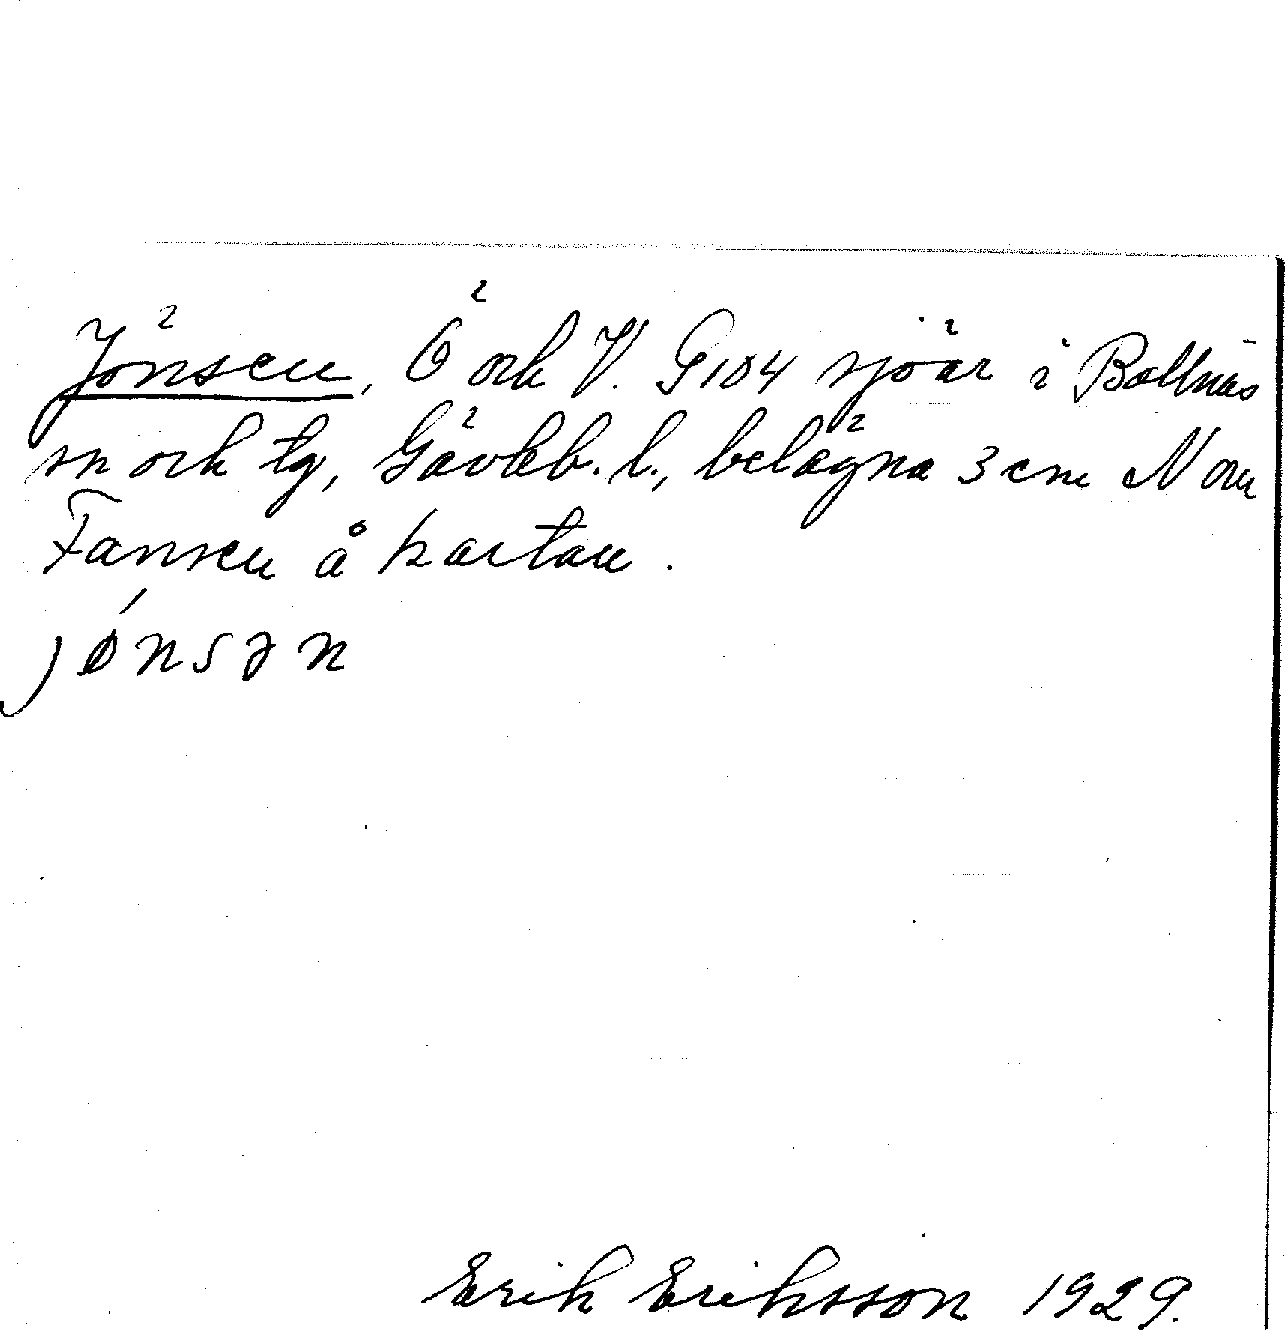 Jönsen, Ö ock V. G104 sjöar i Bollnäs
sn ock tg, Gävleb. l., belägna 3 cm N om
Fansen å kartan.
jø´nsən
Erik Eriksson 1929.